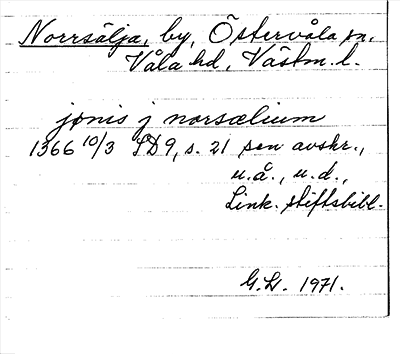 Norrsälja, by, Östervåla sn.
Våla hd, Västm. l.
jønis j norsælium
1366 10/3 SD9, s. 21 sen avskr.,
u.å., u.d.,
Link. stiftsbibl.
G.H. 1971.